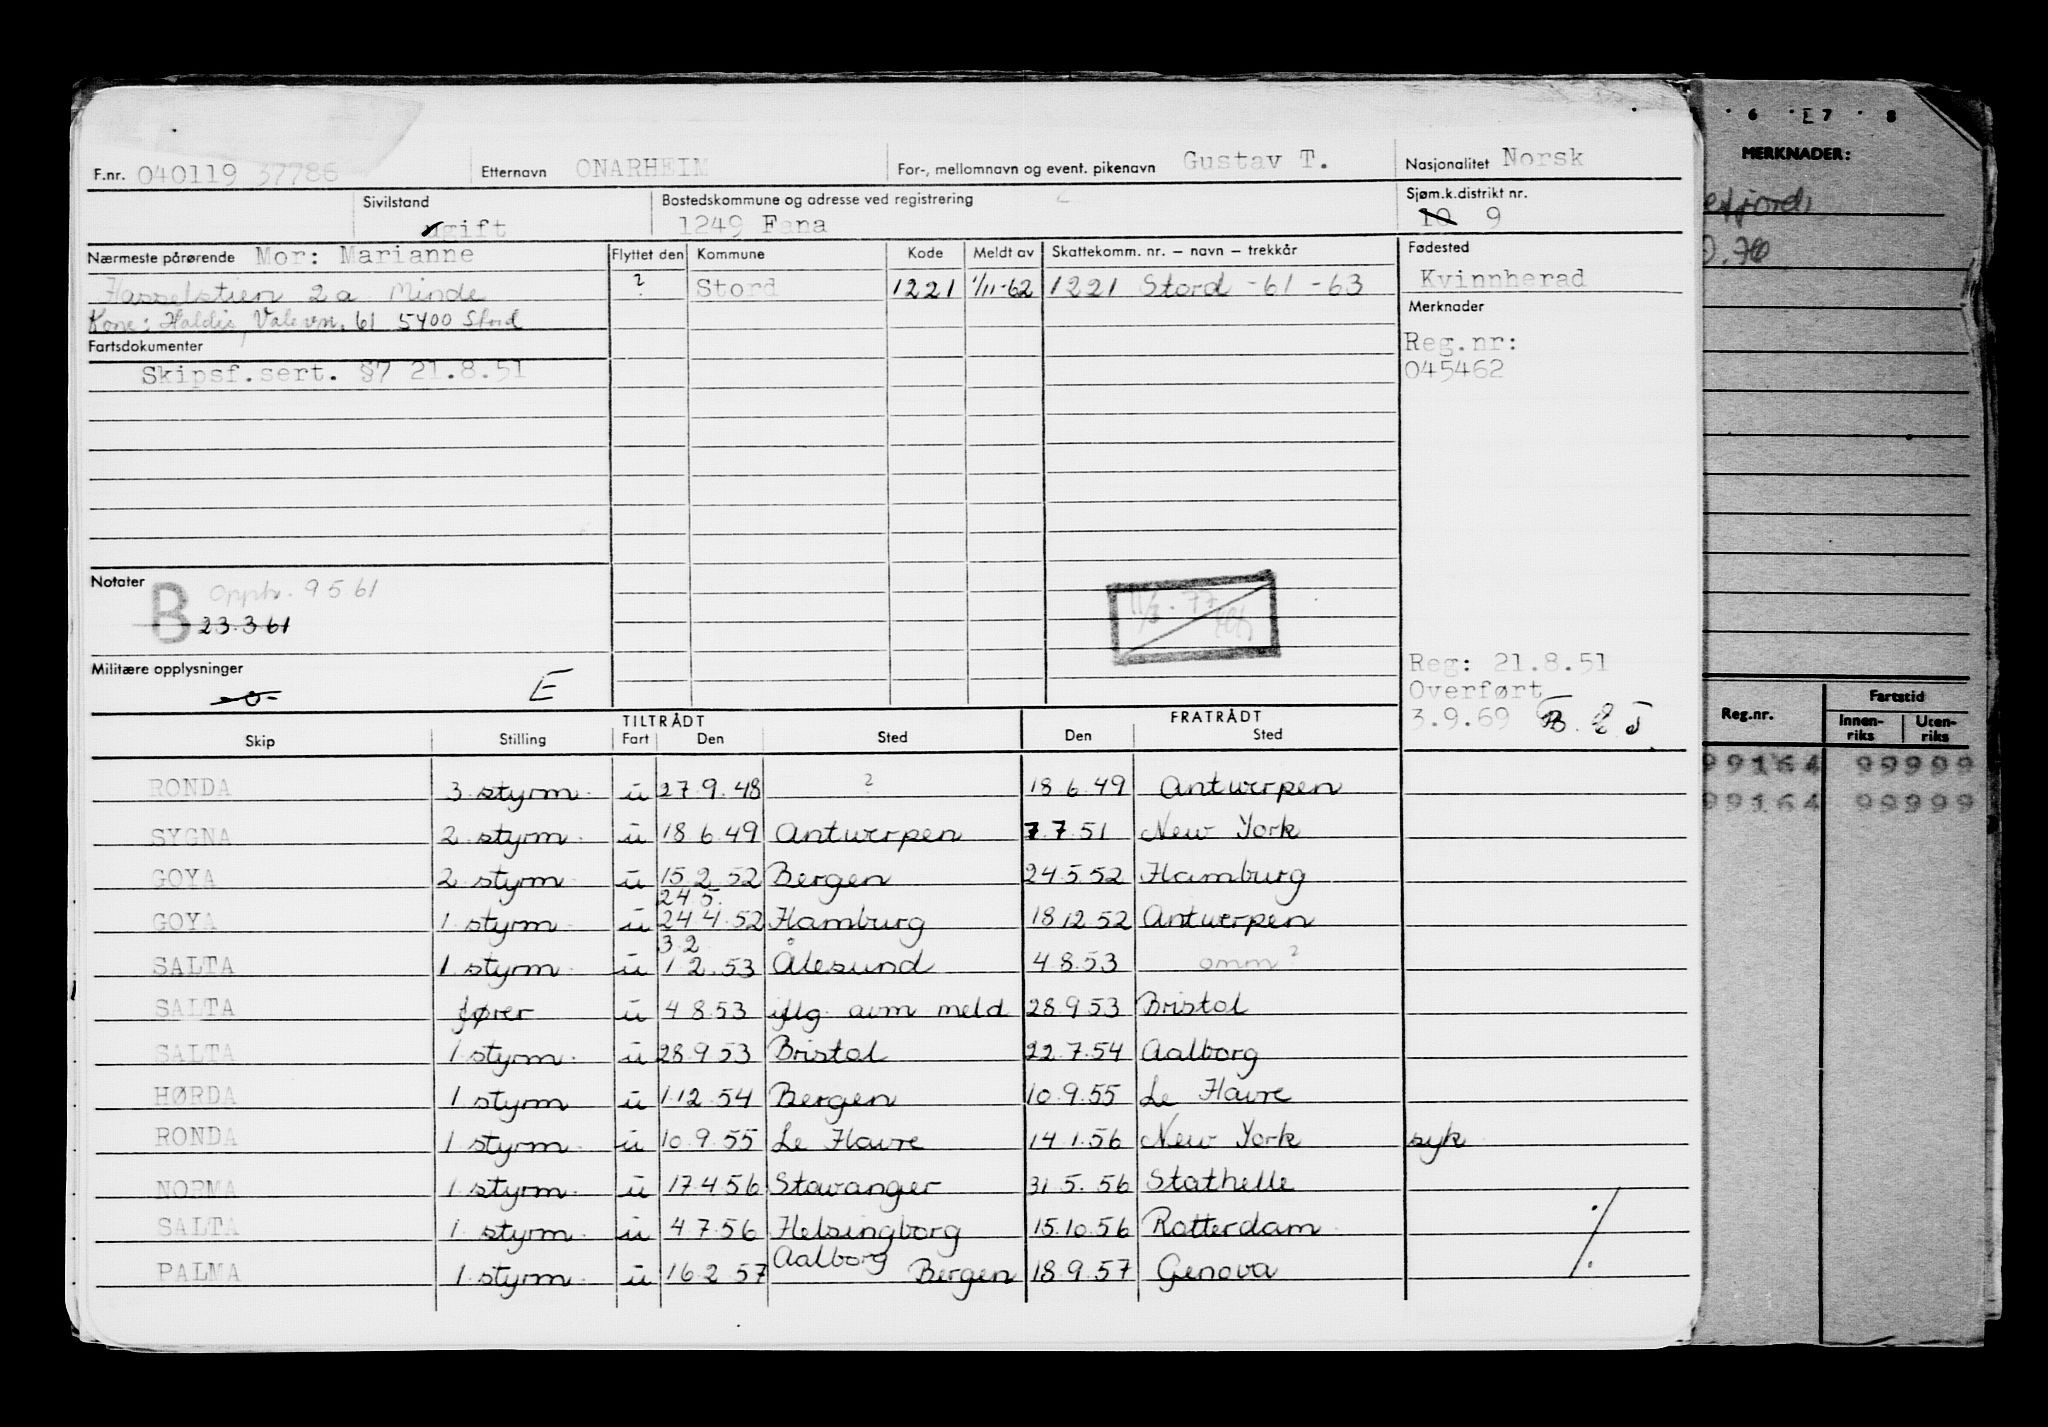 F.nr. 040119 37786 Etternavn ONARHEIM For-, mellomnavn og event. pikenavn Gustav T. Nasjonalitet Norsk
Sivilstand ugift Bostedskommune og adresse ved registrering 1249 Fana Sjøm.k.distrikt nr. 10 9
Nærmeste pårørende Mor: Marianne Flyttet den Kommune Kode Meldt av Skattekomm. nr. – navn – trekkår Fødested
Hasselstien 2a Minde ? Stord 1221 1/11-62 1221 Stord -61 -63 Kvinnherad
Kone: Haldis, 61 5400 Stord Merknader
Fartsdokumenter Reg.nr:
Skipsf.sert. §7 21.8.51 045462
Notater
B Opptr. 9 5 61
23.3 61
11/3. 77
Militære opplysninger Reg: 21.8.51
-o- E Overført
3.9.69
TILTRÅDT FRATRÅDT
Skip Stilling Fart Den Sted Den Sted
RONDA 3 styrm. u 27.9.48 ? 18.6.49 Antwerpen
SYGNA 2 styrm. u 18 6.49 Antwerpen 7.7.51 New York
GOYA 2 styrm. u 15 2 52 Bergen 24.5.52 Hamburg
24.5.
GOYA 1 styrm. u 24 4.52 Hamburg 18 12 52 Antwerpen
3.2
SALTA 1 styrm. u 1 2.53 Ålesund 4 8.53 omm ?
SALTA fører u 4 8.53 iflg. avm meld 28.9 53 Bristol
SALTA 1 styrm. u 28.9 53 Bristol 22.7.54 Aalborg
HØRDA 1 styrm. u 1.12.54 Bergen 10.9.55 Le Havre
RONDA 1 styrm. u 10.9.55 Le Havre 14.1.56 New York syk
NORMA 1 styrm. u 17.4 56 Stavanger 31.5.56 Stathelle
SALTA 1 styrm. u 4 7.56 Helsingborg 15.10.56 Rotterdam
PALMA 1 styrm. u 16.2 57 Aalborg Bergen 18 9.57 Genova
6 7 8
MERKNADER:
Fartstid
Reg.nr. Innen-riks Uten-riks
99164 99999
99164 99999